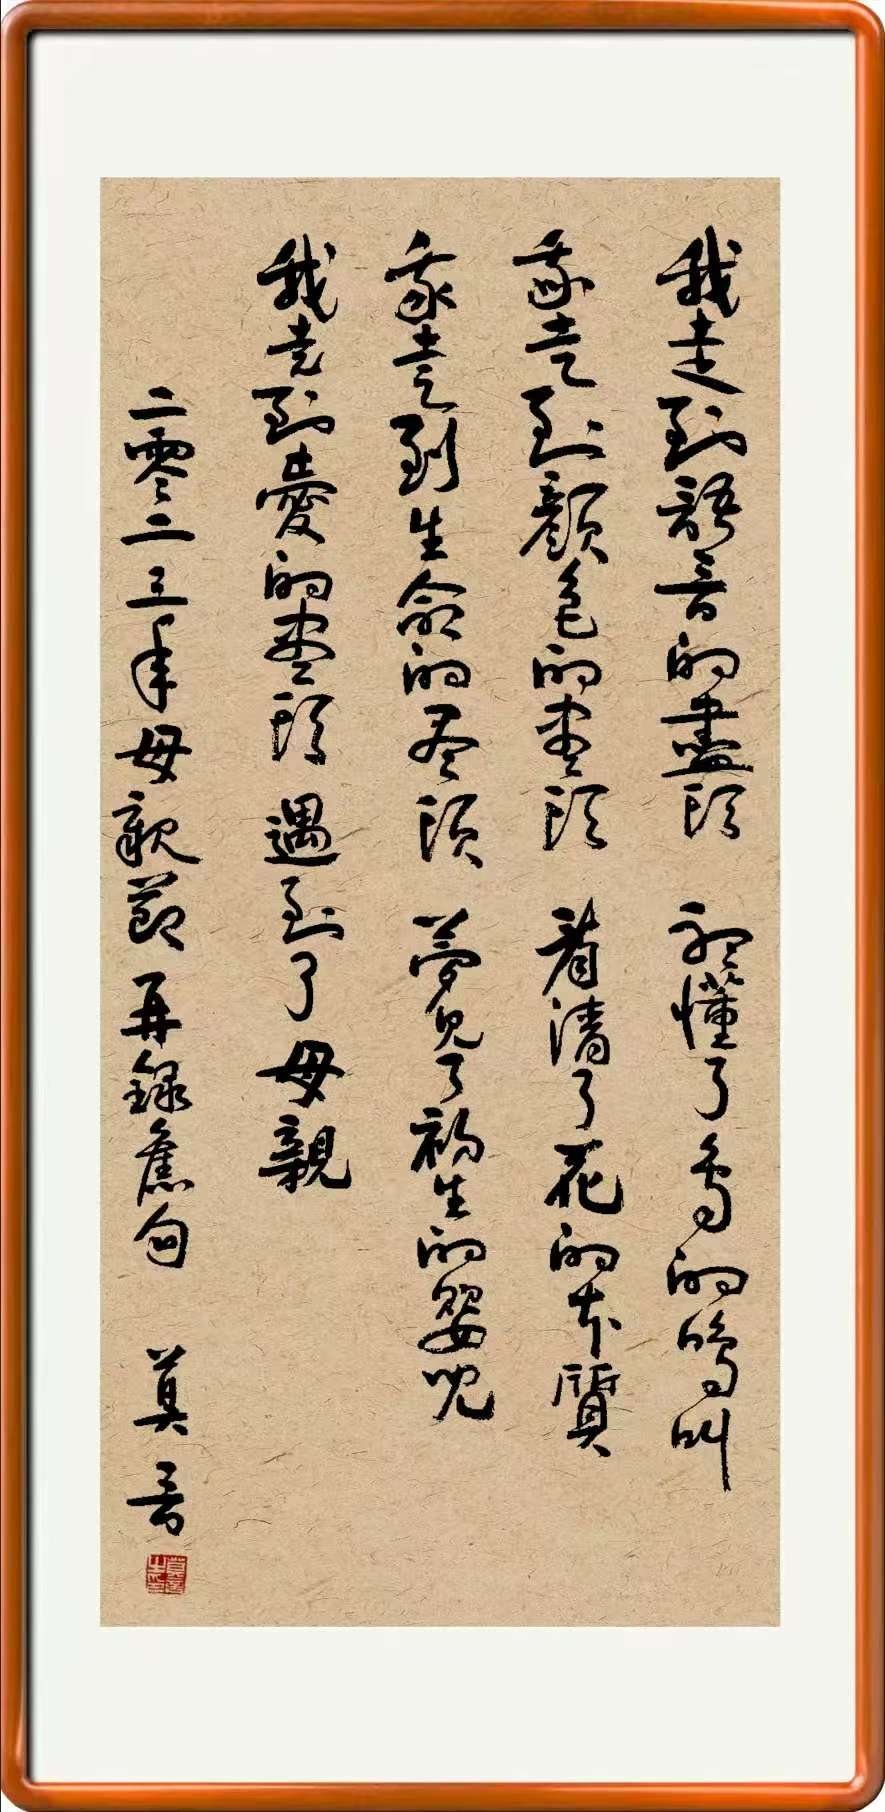 我走到語言的盡頭 聽懂了鳥的鳴叫
我走到顏色的盡頭 看清了花的本質
我走到生命的尽頭 夢見了初生的嬰兒
我走到愛的盡頭 遇到了母親
二零二三年母親節再錄舊句 莫言